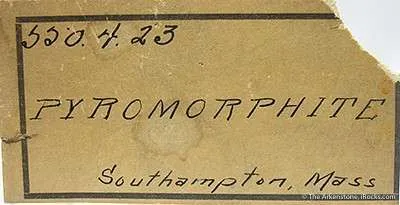 550.4.23
PYROMORPHITE
Southampton, Mass
© The Arkenstone, iRocks.com